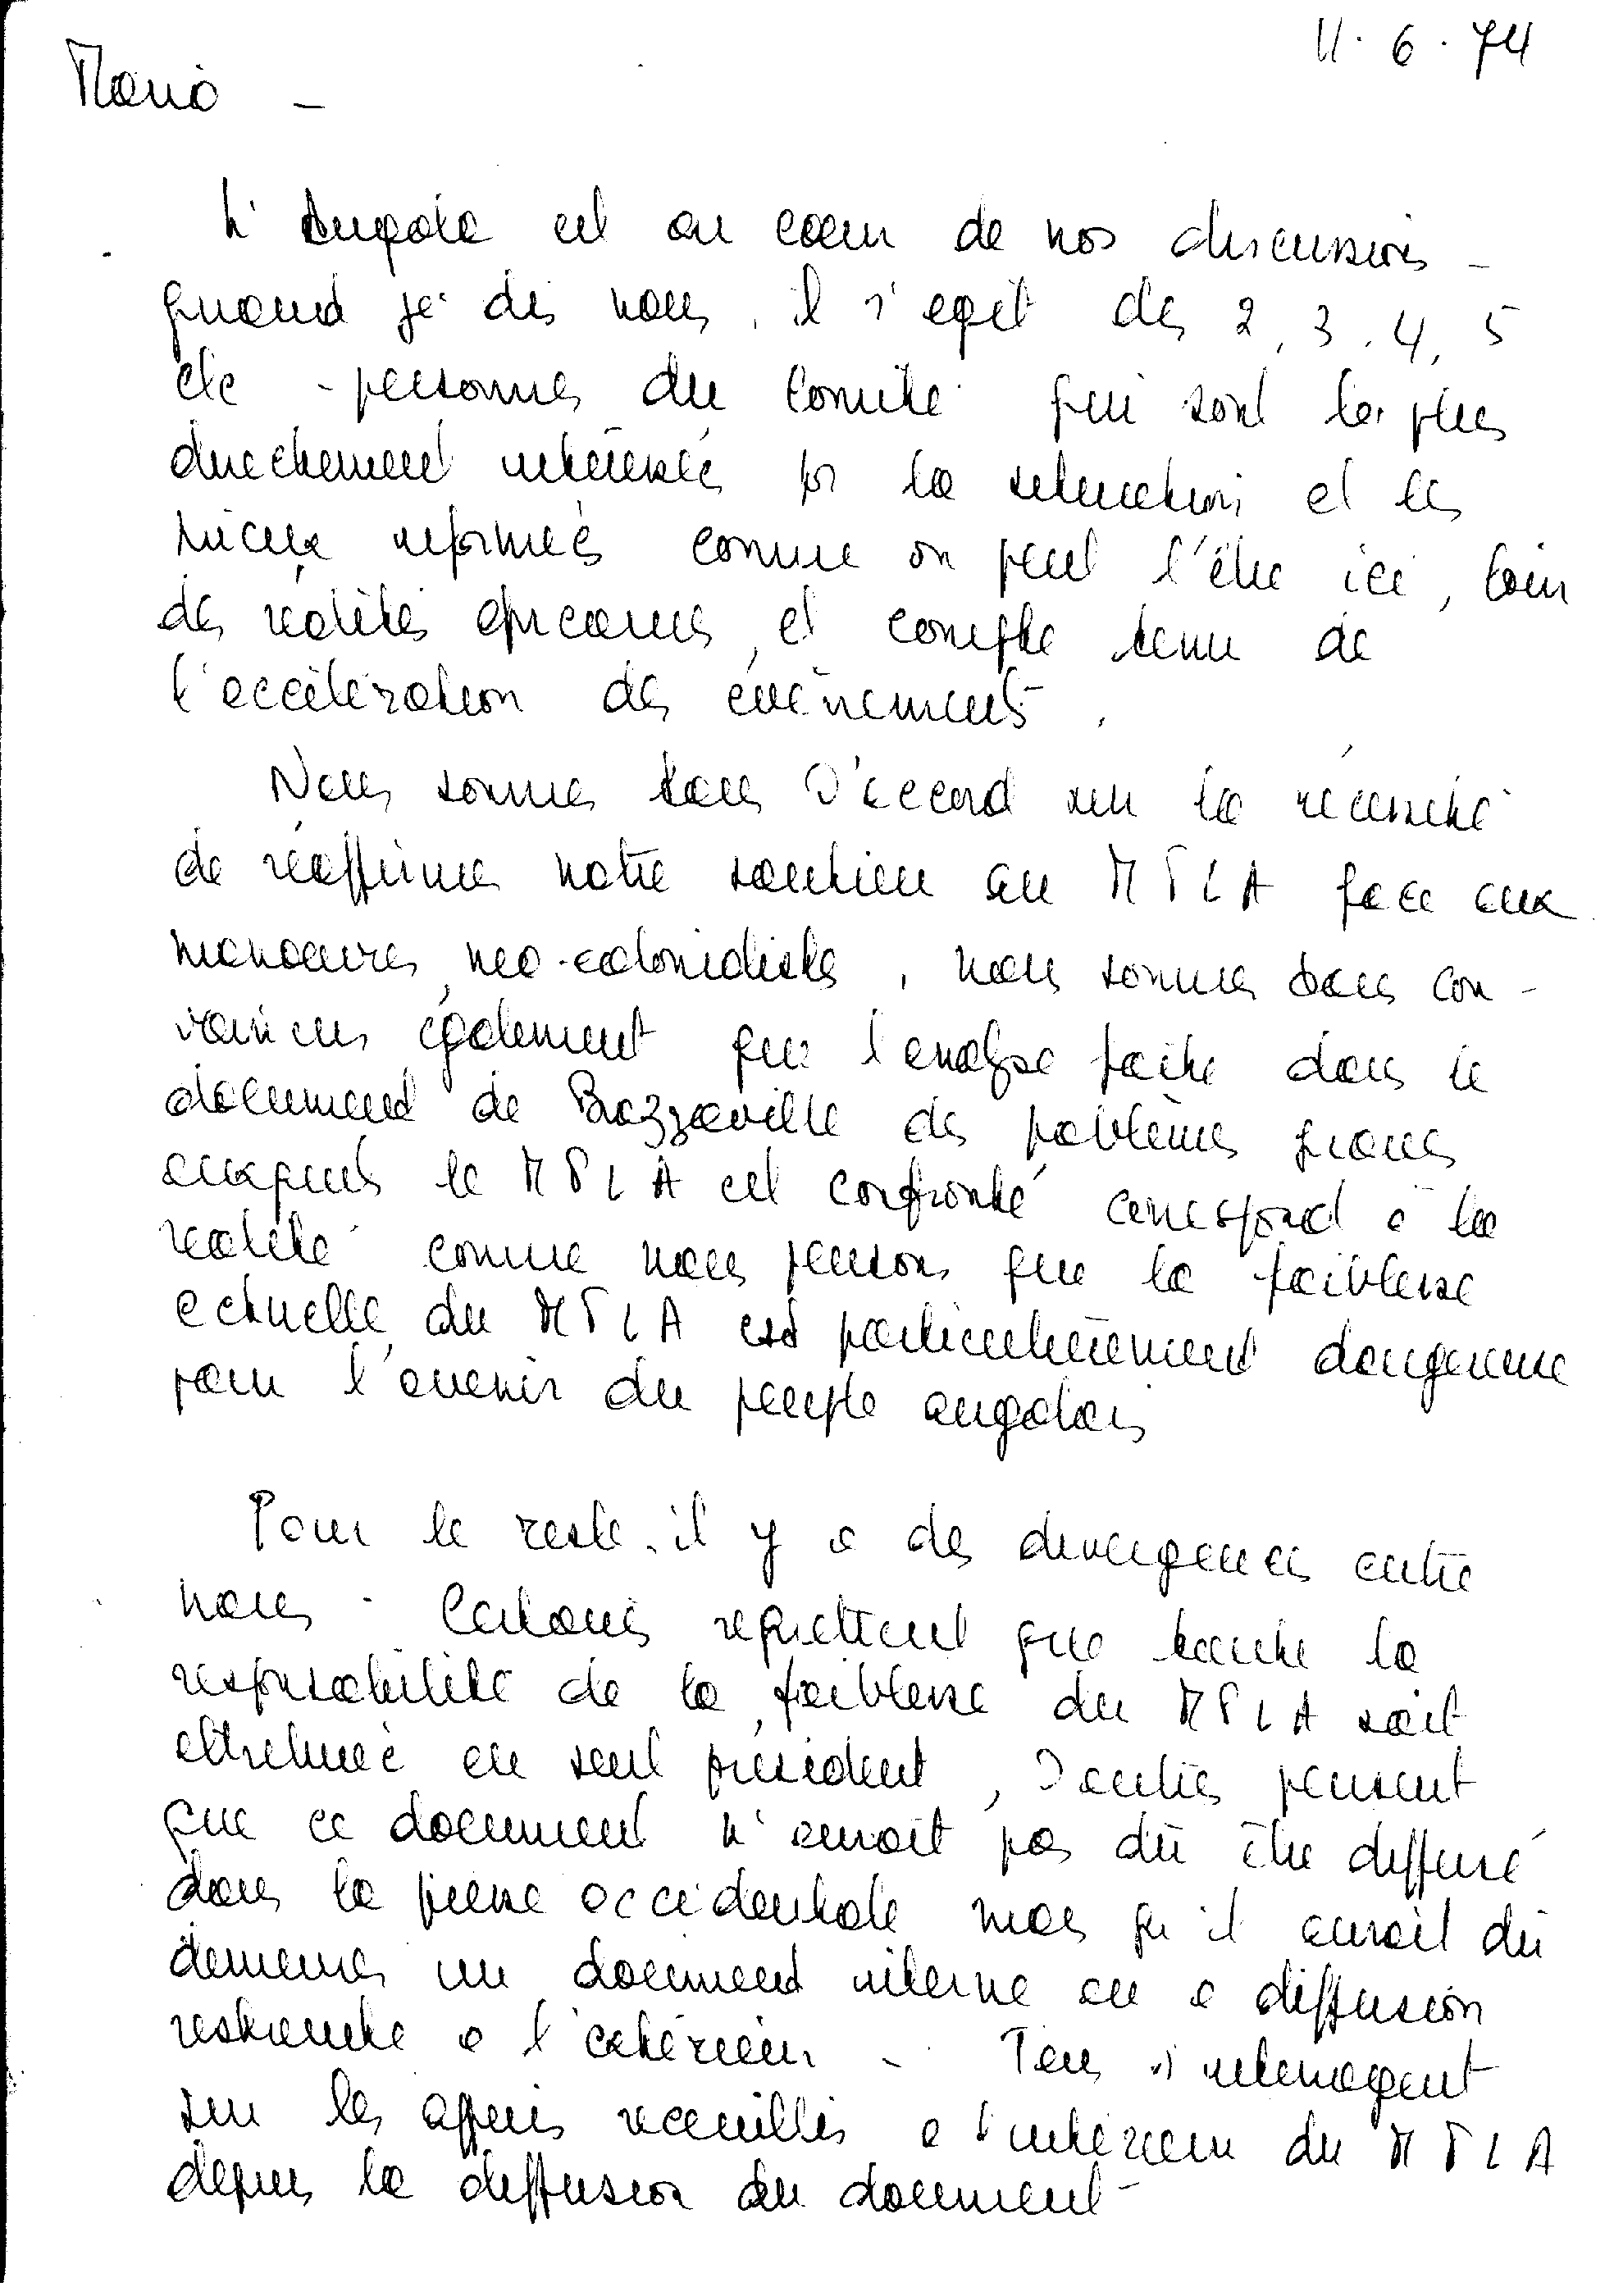 11.6.74
Mario -
L'Angola est au coeur de nos discussions -
quand je dis nous, il s'agit des 2, 3, 4, 5
etc - personnes du Comité qui sont les plus
directement intéressés pr la situation et les
mieux informés comme on peut l'être ici, loin
des réalités africaines, et compte tenu de
l'accélération des événements.
Nous sommes tous d'accord sur la nécessité
de réaffirmer notre soutien au MPLA face aux
manoeuvres neo-colonialistes, nous sommes tous con-
vaincus également que l'analyse faite dans le
document de Brazzaville des problèmes graves
auxquels le MPLA est confronté correspond à la
réalité comme nous pensons que la faiblesse
actuelle du MPLA est particulièrement dangereuse
pour l'avenir du peuple angolais
Pour le reste, il y a des divergences entre
nous. Certains regrettent que toute la
responsabilité de la faiblesse du MPLA soit
attribuée au seul président, d'autres pensent
que ce document n'aurait pas dû être diffusé
dans la presse occidentale mais qu'il aurait dû
demeurer un document interne ou à diffusion
restreinte à l'extérieur - Tous s'interrogent
sur les appuis recueillis à l'intérieur du MPLA
depuis la diffusion du document -